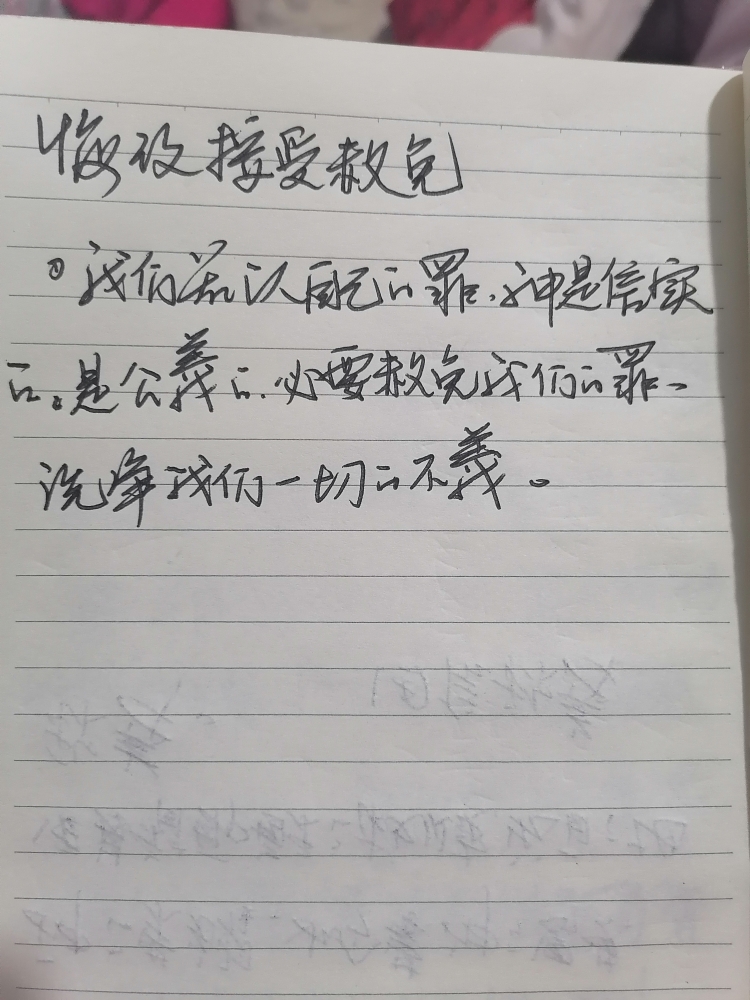 悔改接受赦免
① 我们若认自己的罪、神是信实
的。是公義的、必要赦免我们的罪、
洗净我们一切的不義。